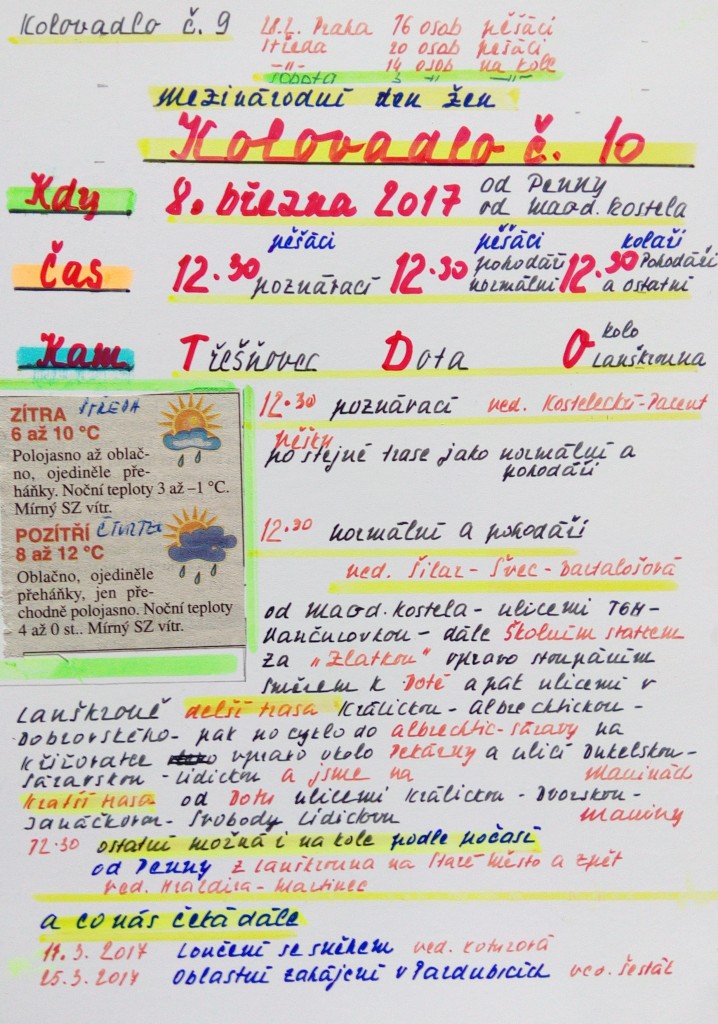 Kolovadlo č. 9
28.2. Praha 76 osob pěšáci
středa 20 osob pěšáci
-"- 14 osob na kole
sobota 3 -"- -"-
Mezinárodní den žen
Kolovadlo č. 10
Kdy 8. března 2017 od Penny
od maod. kostela
pěšáci pěšáci kolaři
Čas 12.30 poznávací 12.30 pohodáři normální 12.30 Pohodáři a ostatní
Kam Třešňovec Dota O kolo Lanškrouna
ZÍTRA STŘEDA
6 až 10 °C
Polojasno až oblač-
no, ojediněle pře-
háňky. Noční teploty 3 až –1 °C.
Mírný SZ vítr.
POZÍTŘÍ ČTVRTEK
8 až 12 °C
Oblačno, ojediněle
přeháňky, jen pře-
chodně polojasno. Noční teploty
4 až 0 st.. Mírný SZ vítr.
12.30 poznávací ved. Kostelecký-Pacent
pěšky
po stejné trase jako normální a
pohodáři
12.30 normální a pohodáři
ved. Šilar- Švec-
od maod. kostela- ulicemi TGM-
Hančulovkou- dále Školním statkem
za "Zlatkou" vpravo stoupáním
směrem k Dotě a pak ulicemi v
Lanškrouně delší trasa Králickou- Albrechtickou-
Dobrovského- pak po cyklo do albrechtic-sázavy na
křižovatce vpravo okolo Pekárny a ulicí Dukelskou-
Sázavskou- Lidickou a jsme na Marinád
Kratší trasa od Doty ulicemi Králickou- Dvorskou-
Janáčkovou- Svobody Lidickou Mariny
12.30 ostatní možná i na kole podle počasí
od Penny z Lanškrouna na Staré Město a zpět
ved. Hrazdíra- Martinec
a co nás čeká dále
2017 Loučení se sněhem ved.
25.3.2017 Oblastní zahájení v Pardubicích ved. Šesták